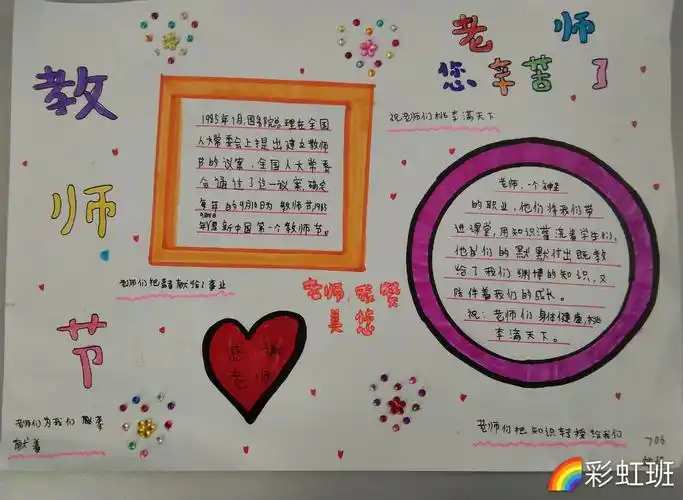 教
师
节
老师
您辛苦了
祝老师们桃李满天下
1985年1月,国务院总理在全国
人大常委会上提出建立教师
节的议案,全国人大常委
会通过了这一议案,确定
每年的9月10日为教师节,1985
年9月10日是新中国第一个教师节。
老师,一个神圣
的职业,他们将我们带
进课堂,用知识灌浇着学生们,
他们的默默付出既教
给了我们渊博的知识,又
陪伴着我们的成长。
祝:老师们身体健康,桃
李满天下。
老师们把青春献给了事业
老师,我赞
美您
感谢
老师
老师们为我们默默
献着
老师们把知识转授给我们
706
彩虹班